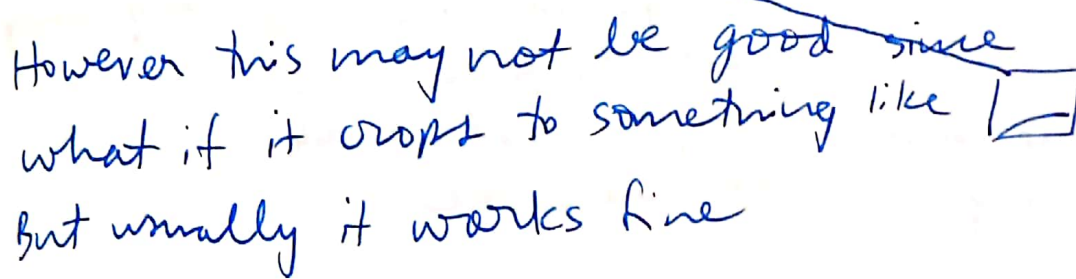 However this may not be good since
what if it crops to something like
But usually it works fine